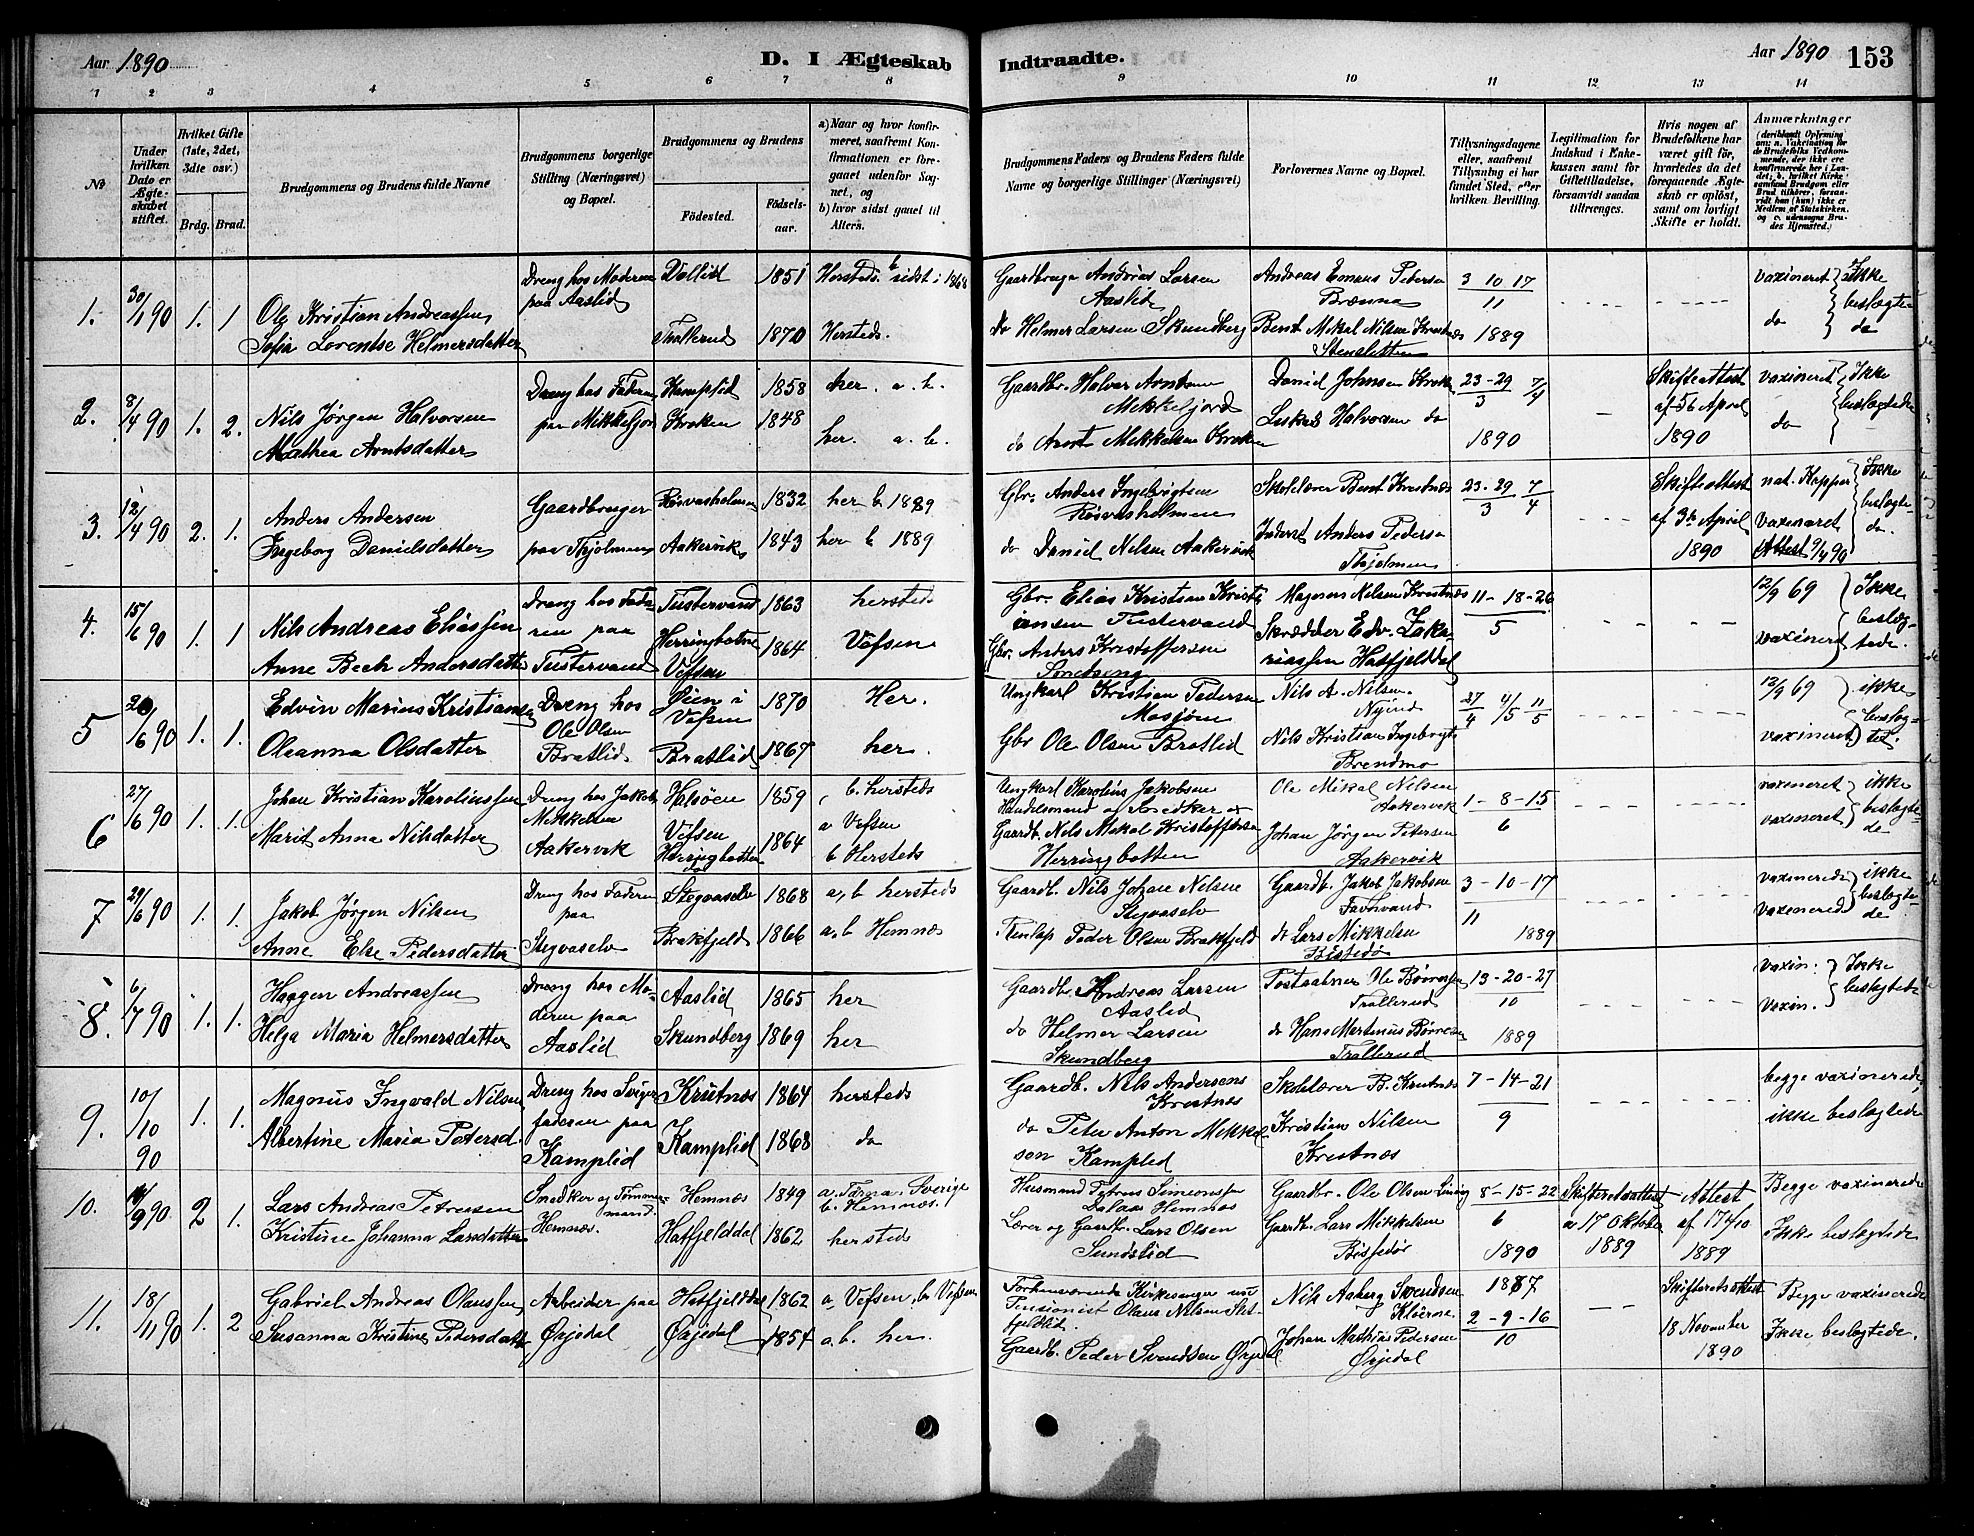 Aar 1890
D. I Ægteskab Indtraadte.
Aar 1890 153
1 2 3 4 5 6 7 8 9 10 11 12 13 14
No
Under hvilken Dato er Ægteskabet stiftet.
Hvilket Gifte (1ste, 2det, 3die osv.)
Brdg. Brud.
Brudgommens og Brudens fulde Navne
Brudgommens borgerlige Stilling (Næringsvei) og Bopæl.
Brudgommens og Brudens
Fødested.
Fødselsaar.
a) Naar og hvor konfirmeret, saafremt Konfirmationen er foregaaet udenfor Sognet, og
b) hvor sidst gaaet til Alters.
Brudgommens Faders og Brudens Faders fulde Navne og borgerlige Stillinger (Næringsvei)
Forlovernes Navne og Bopæl.
Tillysningsdagene eller, saafremt Tillysning ei har fundet Sted, efter hvilken Bevilling.
Legitimation for Indskud i Enkekassen samt for Giftetilladelse, forsaavidt saadan tiltrænges.
Hvis nogen af Brudefolkene har været gift før, hvorledes da det foregaaende Ægteskab er opløst, samt om lovligt Skifte er holdt.
Anmærkninger
(deriblandt Oplysning om: a. Vakcination for de Brudefolks Vedkommende, der ikke ere konfirmerede her i Landet; b. hvilket Kirkesamfund Brudgom eller Brud tilhører, forsaavidt han (hun) ikke er Medlem af Statskirken, og c. udensogns Brudes Hjemsted.)
1. 30/1 90 1. 1 Ole Kristian Andreassen
Sofia Lorentse Helmersdatter
Dreng hos Moderen paa Aaslid
1851
Trallerud 1870
Hersteds. b sidst i 1868
Hersteds.
Gaardbruger Andreas Larsen Aaslid
do Helmer Larsen Skundberg
Andreas Pedersen
Bent Mikal Nilsen Krutnæs
3 10 17
11
1889
vaxineret
do
Ikke beslægtede
2. 8/4 90 1. 2. Nils Jørgen Halvorsen
Mathea Arntsdatter
Dreng hos Faderen paa Mikkelfjord
Kamplid 1858
Kroken 1848
her. a. b.
her. a. b.
Gaardbr. Halvor Arntsen Mikkelfjord
do Arnt Mikkelsen Kroken
Daniel Johnsen Kroken
Lukas Halvorsen do
23-29 7/4
3
1890
Skifteattest af April 1890
vaxineret
do
Ikke beslægtede
3. 12/4 90 2. 1. Anders Andersen
Ingeborg Danielsdatter
Gaardbruger paa Thjolmen
Røsvasholmen 1832
Aakervik 1843
her b 1889
her b 1889
Gbr. Anders Ingebrigtsen Røsvasholmen
do Daniel Nilsen Aakervik
Skolelærer Bent Krutnæs
Anders Pedersen Thjolmen
23-29 7
3 4
Skifteattest af 3de April 1890
nat. Kopper
vaxineret
Attest 9/4 90
Ikke beslægtede.
4. 15/6 90 1. 1 Nils Andreas Eliassen
Anne Bech Andersdatter
Dreng hos Faderen paa Tustervand
Tustervand 1863
Herringbotn Vefsen 1864
hersteds
Vefsen
Gbr. Elias Kristian Kristiansen Tustervand
Gbr. Anders Kristoffersen
Magnus Nilsen Krutnæs
Skrædder Edv. Zakariassen Hatfjelddal
11-18-26
5
12/9 69
vaxineret
Ikke beslægtede.
5 /6 90 1. 1. Edvin Marius Kristiansen
Oleanna Olsdatter
Dreng hos Ole Olsen Bratlid.
Øien i Vefsen 1870
Bratlid 1867
Her.
her.
Ungkarl Kristian Pedersen Mosjøen
Gbr Ole Olsen Bratlid
Nils A. Nilsen.
Nils Kristian Ingebrigts. Brendmo
27/4 4/5 11/5
12/9 69
vaxineret
ikke beslægtet.
6 27/6 90 1. 1. Johan Kristian Karoliussen
Marit Anna Nilsdatter
Dreng hos Jakob Mikkelsen Aakervik
Halsøen Vefsen 1859
1864
b. hersteds
a Vefsen
b Hersteds
Ungkarl Karolius Jakobsen Handelsmand og Snedker
Gaardb. Nils Mikal Kristoffersen Herringbotten
Ole Mikal Nilsen Aakervik
Johan Jørgen Petersen Aakervik
1-8-15
6
vaxineret
vaxineret
ikke beslægtede
7 29/6 90 1. 1. Jakob Jørgen Nilsen
Anne Else Pedersdatter
Dreng hos Faderen paa Stegvaselv
Stegvaselv 1868
Brakfjeld 1866
a, b hersteds
a, b Hemnæs
Gaardb. Nils Johan Nilsen Stegvaselv
Peder Olsen Brakfjeld
Gaardb. Jakob Jakobsen Favnvand
do Lars Mikkelsen
3-10-17
11
1889
vaxinerede
vaxinered
ikke beslægtede
8. 6/7 90 1. 1. Haagen Andreassen
Helga Maria Helmersdatter
Dreng hos Moderen paa Aaslid
Aaslid 1865
Skundberg 1869
her
her
Gaardbr. Andreas Larsen Aaslid
do Helmer Larsen Skundberg
Postaabner Ole Børresen Trallerud
do Hans Martinus Børresen Trallerud
13-20-27
10
1889
vaxin.
vaxin.
Ikke beslægtede
9. 10/10 90 1. 1. Magnus Ingvald Nilsen
Albertine Maria Petersd
Dreng hos Svigerfaderen paa Kamplid
Krutnæs 1864
Kamplid 1868
hersteds
do
Gaardb. Nils Andersens Krutnæs
do Peter Anton Mikkelson Kamplid
Skolelærer B. Krutnæs
Kristian Nilsen Krutnæs
7-14-21
9
begge vaxinerede
ikke beslægtede
10. /9 90 2 1. Lars Andreas Petersen
Kristine Johanna Larsdatter
Snedker og Tømmermand. Hemnæs.
Hemnæs 1849
Hatfjelddal 1862
a. Tärna. Sverige
b. Hemnæs.
hersteds
Husmand Petrus Simeonsen Hemnæs
Lærer og Gaardbr. Lars Olsen Sundslid
Gaardbr. Ole Olsen
Gaardb. Lars Mikkelsen
8-15-22
6
1890
Skifteretsattest 17 Oktober 1889
Attest af 17/10 1889
Begge vaxinerede
Ikke beslægtede
11. 18/11 90 1. 2 Gabriel Andreas Olaussen
Susanna Kristine Pedersdatter
Arbeider paa Ørjedal
Hatfjelddal 1862
Ørjedal 1854
a, Vefsen, b, Vefsen
a. b. her.
Forhenværende Kirkesanger nu Pensionist Olaus Nilsen
Gaardb. Peder Svendsen Ørjedal
Nils Aaberg Svendsen
Johan Mathias Pedersen Ørjedal
1887
2-9-16
10
Skifteretsattest 18 November 1890
Begge vaxinerede
Ikke beslægtede.